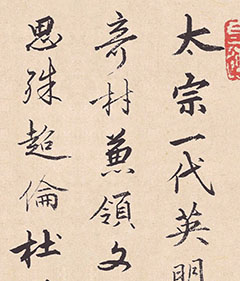 太宗一代英明
奇材兼領文
思殊超倫杜